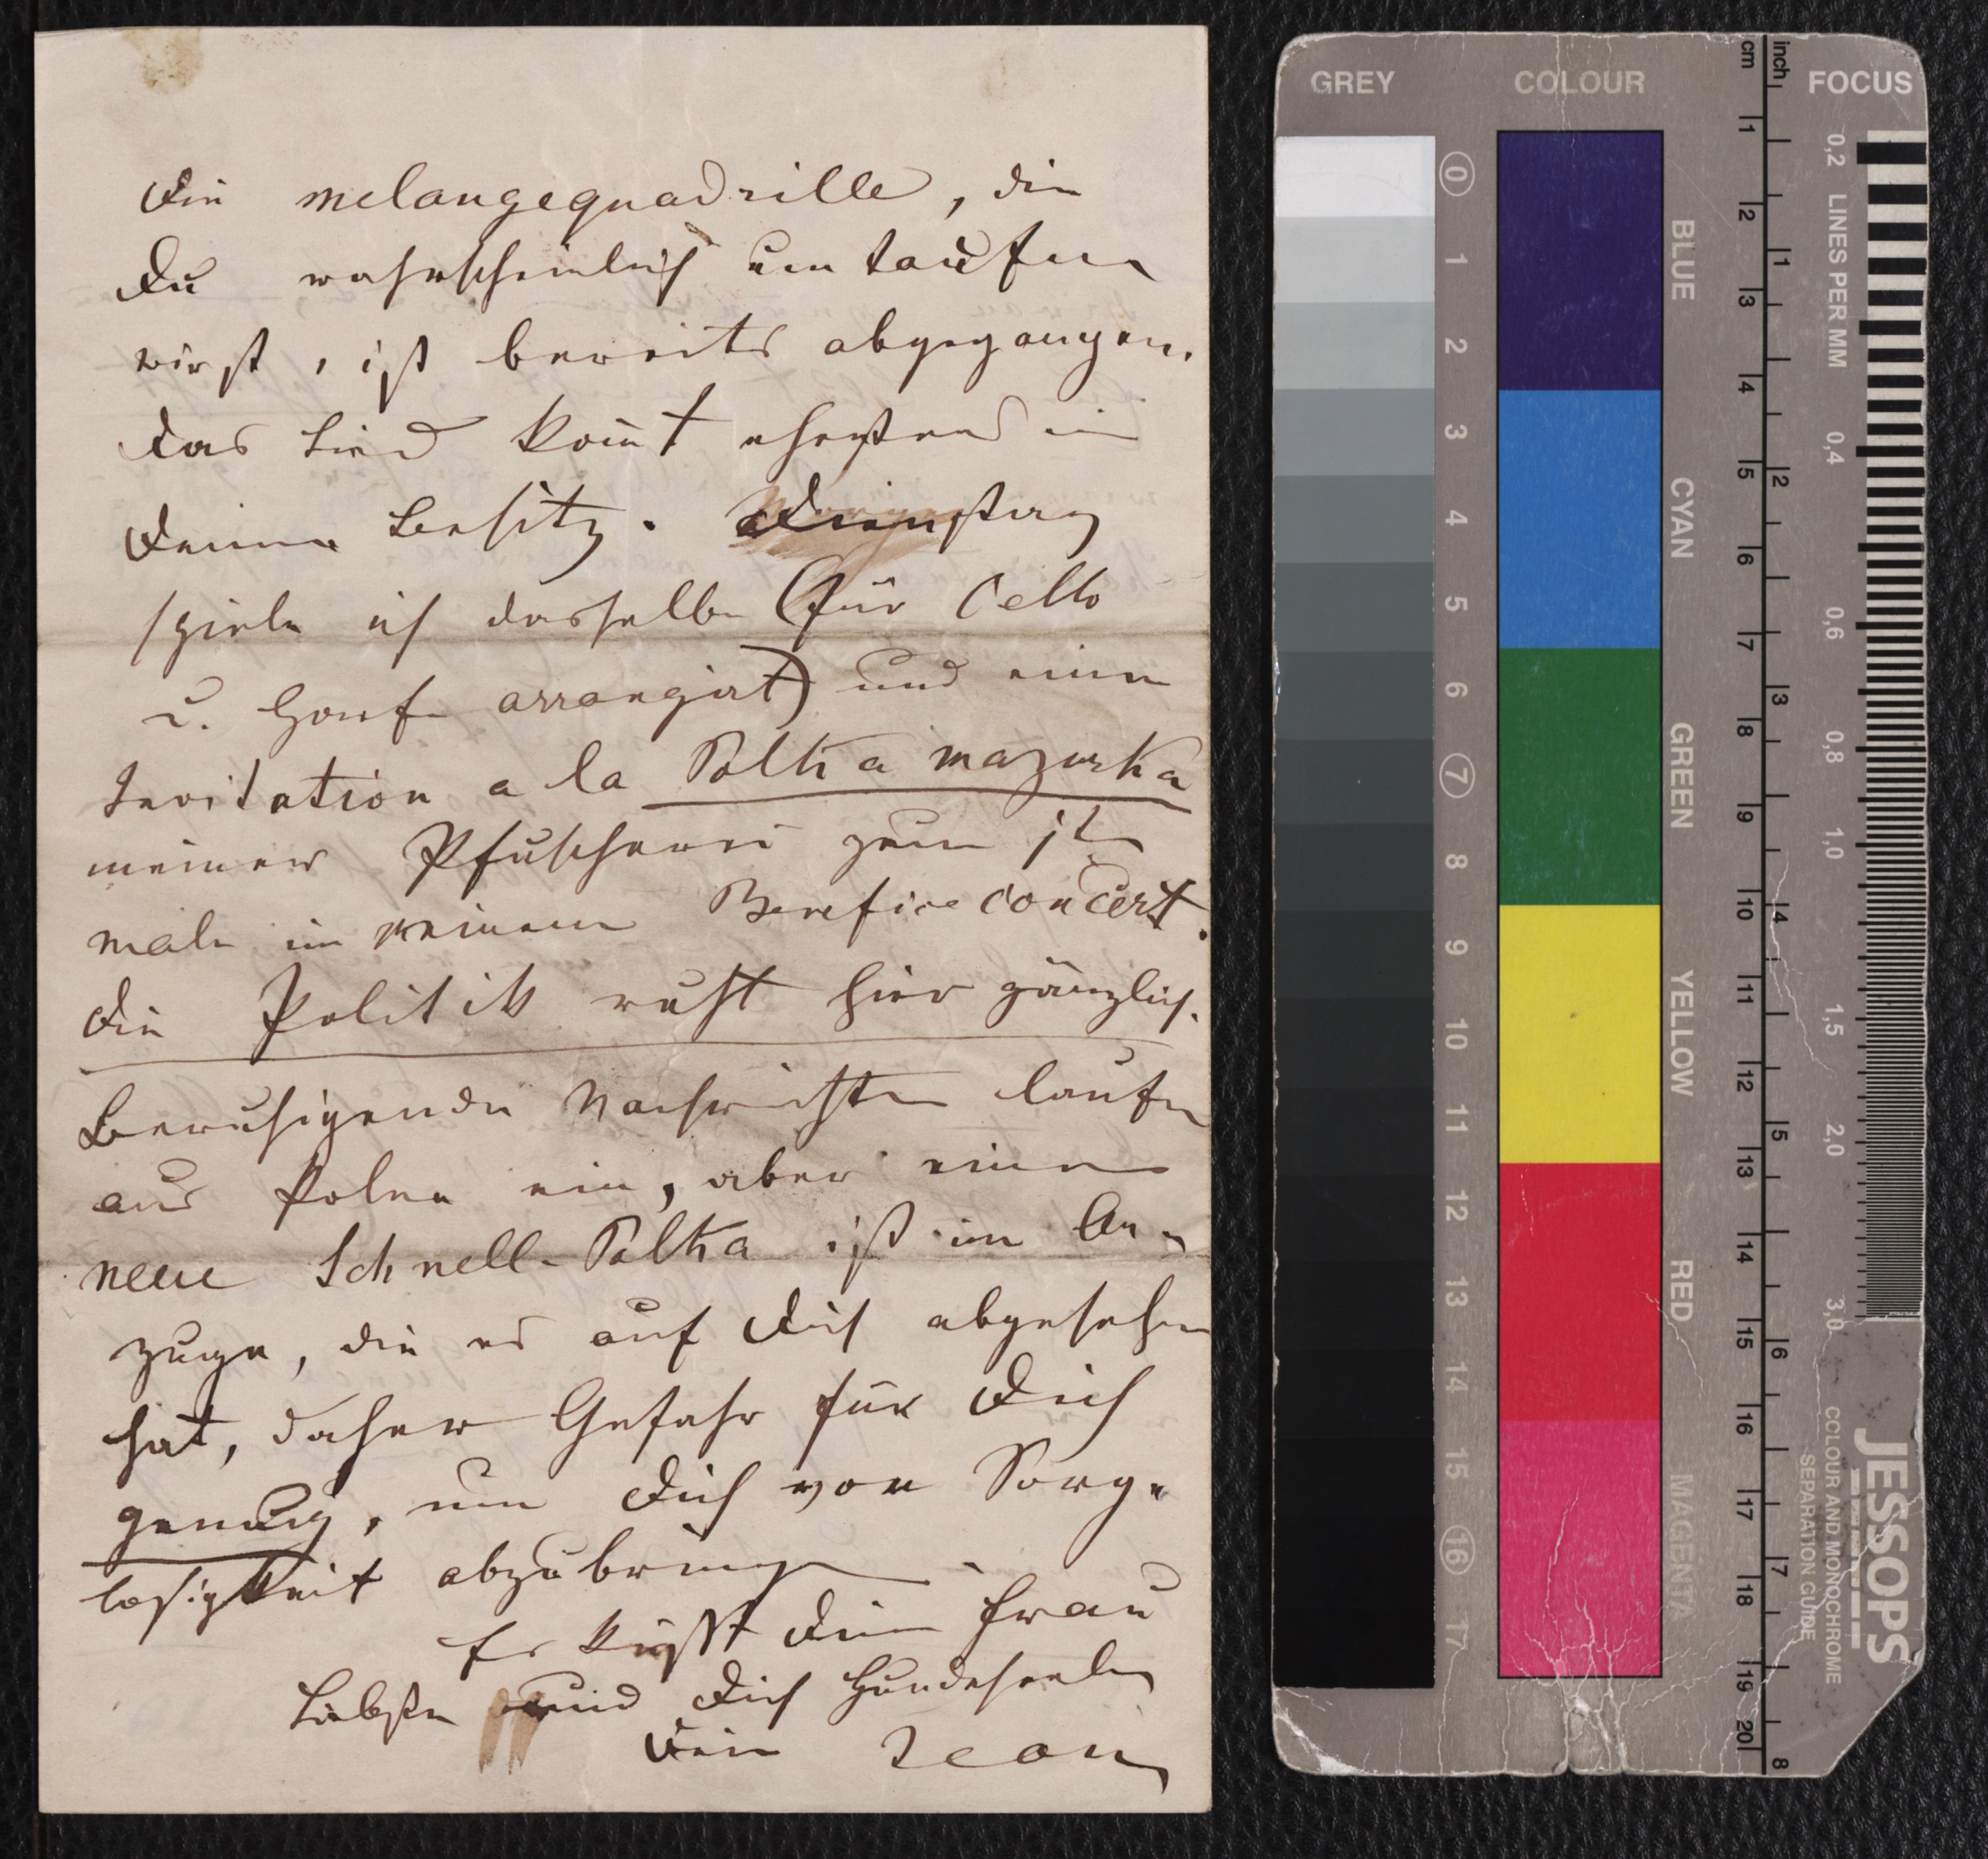 Die melangequadrille, die
Du wahrscheinlich umtaufen
wirst, ist bereits abgegangen.
Das Lied kom̄t ehestens in
Deinen Besitz. Dienstag
spiele ich dasselbe (für Cello
u. Harfe arrangirt) und eine
Invitation a la Polka mazurka
meiner Pfuscherei zum 1t
male in meinem Beneficeconcert.
Die Politik ruht hier gänzlich.
Beruhigende Nachrichten laufen
aus Polen ein, aber eine
neue Schnell-Polka ist im An-
zuge, die es auf Dich abgesehen
hat, daher Gefahr für Dich
genug, um Dich von Sorg-
losigkeit abzubringen
Es küsst Deine Frau
Liebster und Dich Hundeseele
Dein Jean
GREY
COLOUR
FOCUS
cm
inch
0
1
2
3
4
5
6
7
8
9
10
11
12
13
14
15
16
17
BLUE
CYAN
GREEN
YELLOW
RED
MAGENTA
1
2
3
4
5
6
7
8
9
10
11
12
13
14
15
16
17
18
19
20
1
2
3
4
5
6
7
8
0,2
LINES PER MM
0,4
0,6
0,8
1,0
1,5
2,0
3,0
JESSOPS
COLOUR AND MONOCHROME
SEPARATION GUIDE